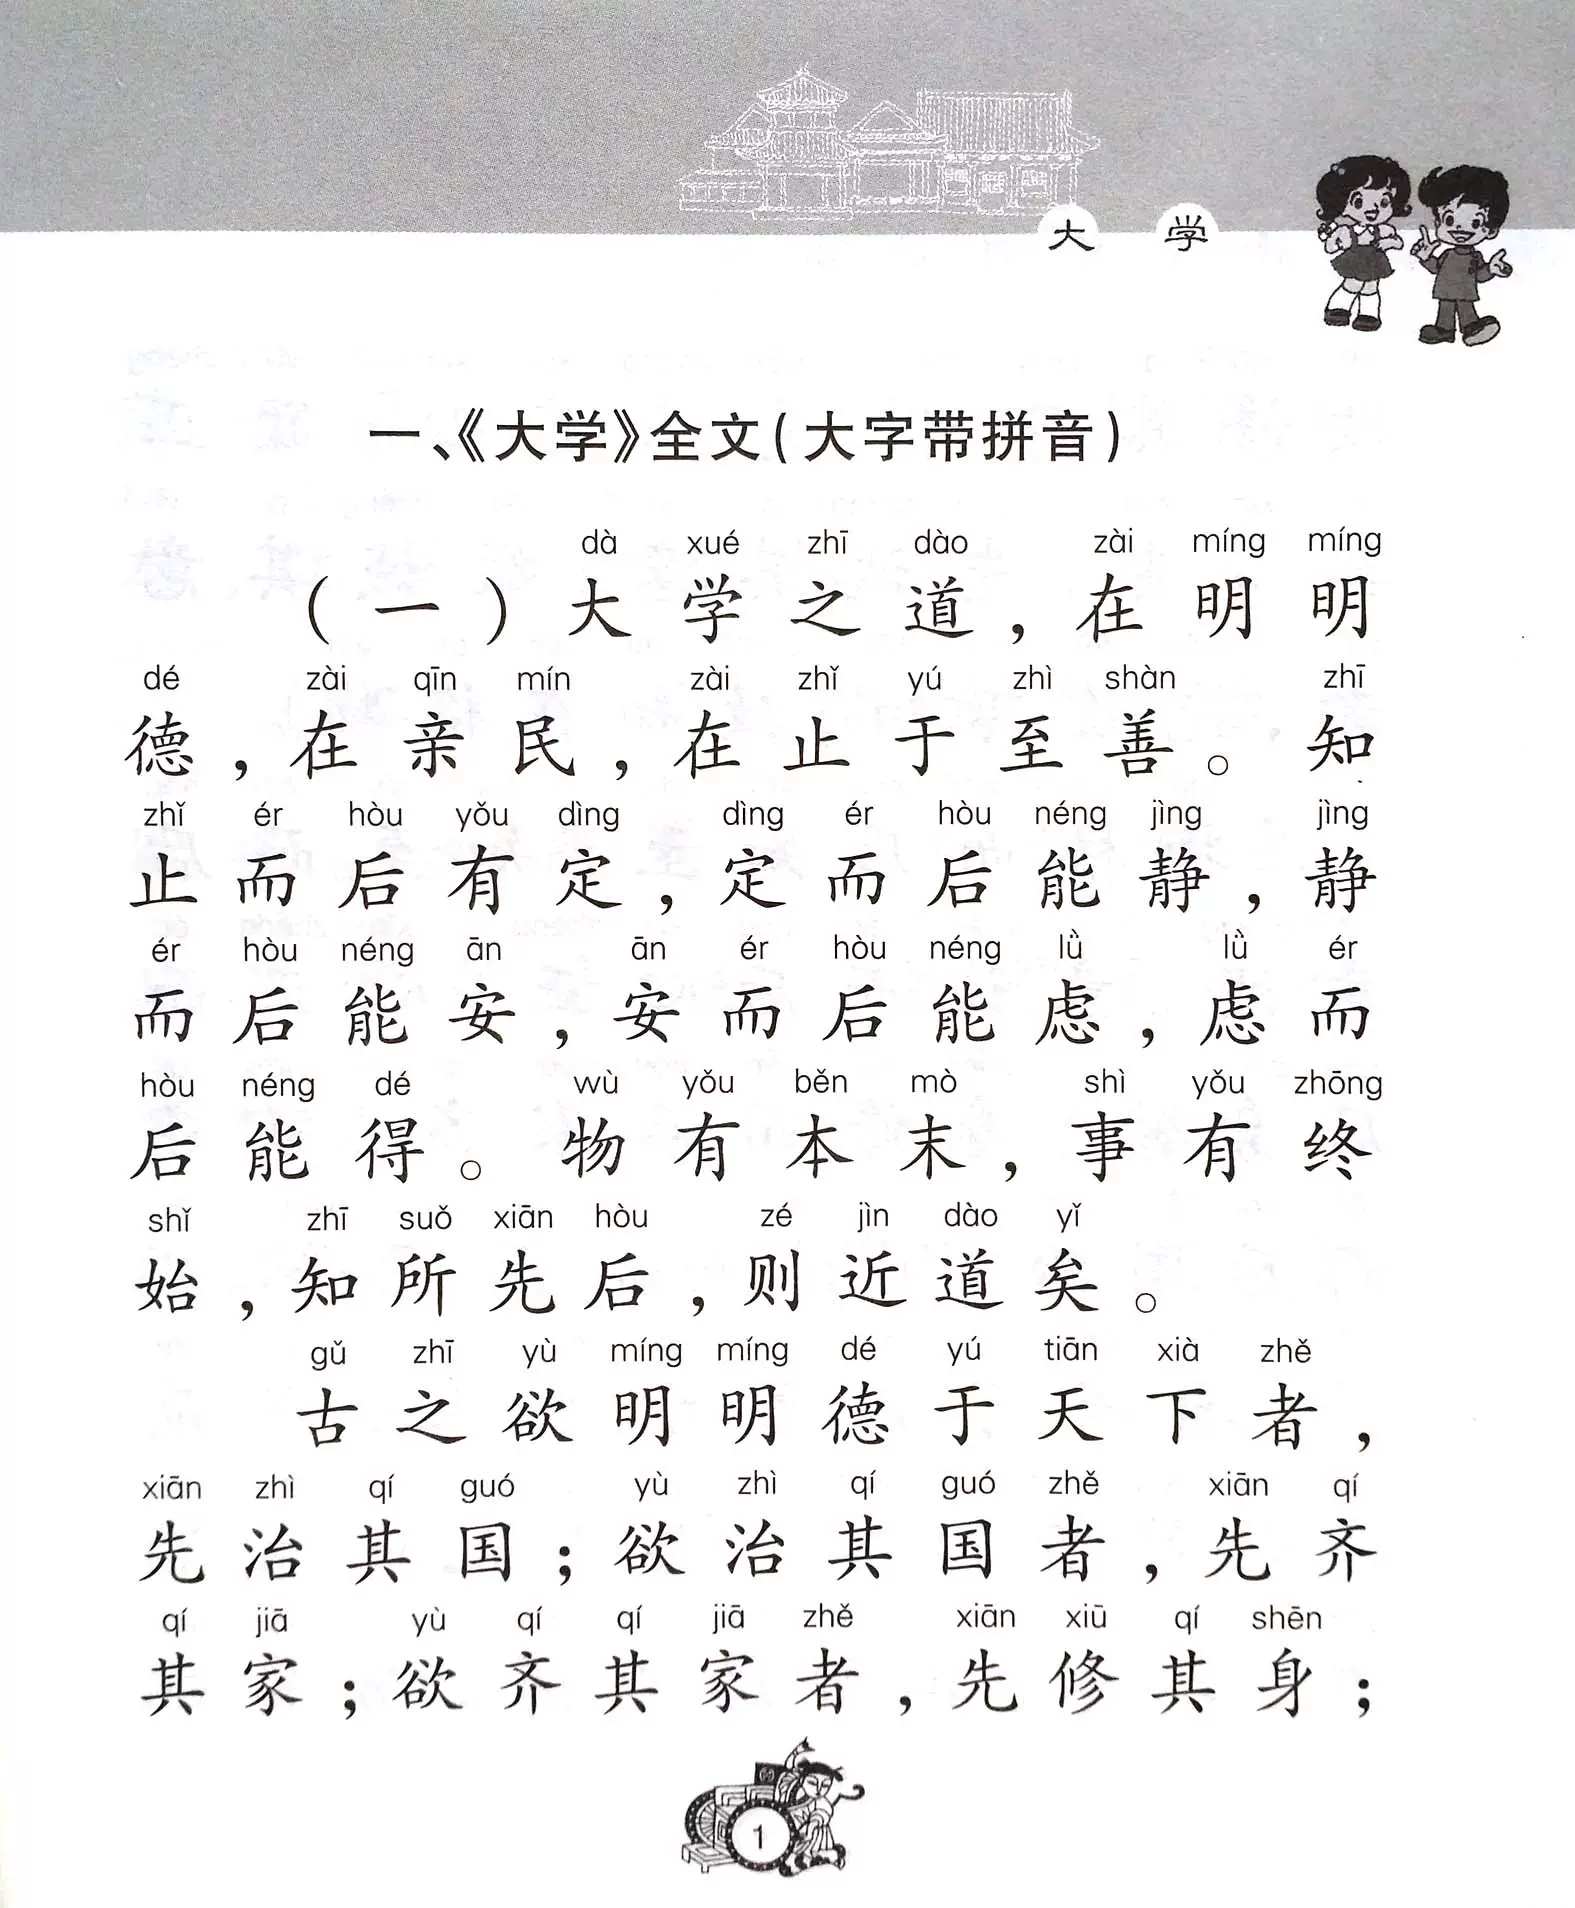 大 学
一、《大学》全文(大字带拼音)
dà xué zhī dào zài míng míng
(一)大学之道,在明明
dé zài qīn mín zài zhǐ yú zhì shàn zhī
德,在亲民,在止于至善。知
zhǐ ér hòu yǒu dìng dìng ér hòu néng jìng jìng
止而后有定,定而后能静,静
ér hòu néng ān ān ér hòu néng lǜ lǜ ér
而后能安,安而后能虑,虑而
hòu néng dé wù yǒu běn mò shì yǒu zhōng
后能得。物有本末,事有终
shǐ zhī suǒ xiān hòu zé jìn dào yǐ
始,知所先后,则近道矣。
gǔ zhī yù míng míng dé yú tiān xià zhě
古之欲明明德于天下者,
xiān zhì qí guó yù zhì qí guó zhě xiān qí
先治其国;欲治其国者,先齐
qí jiā yù qí qí jiā zhě xiān xiū qí shēn
其家;欲齐其家者,先修其身;
1